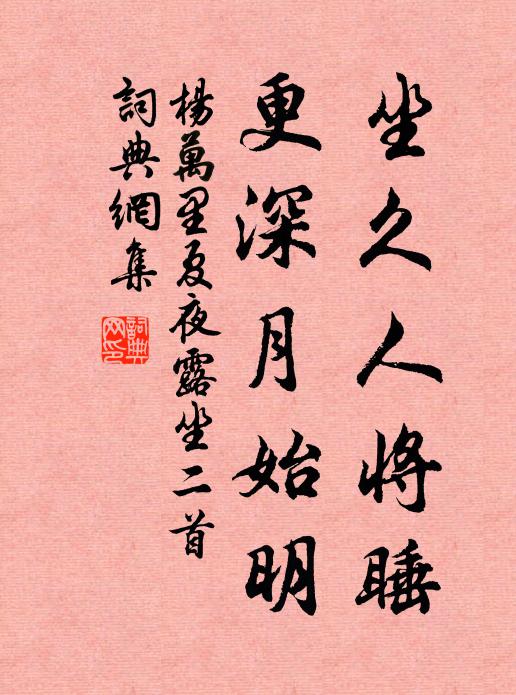 坐久人將睡
更深月始明
楊萬里夏夜露坐二首
詞典網集
詞典網印